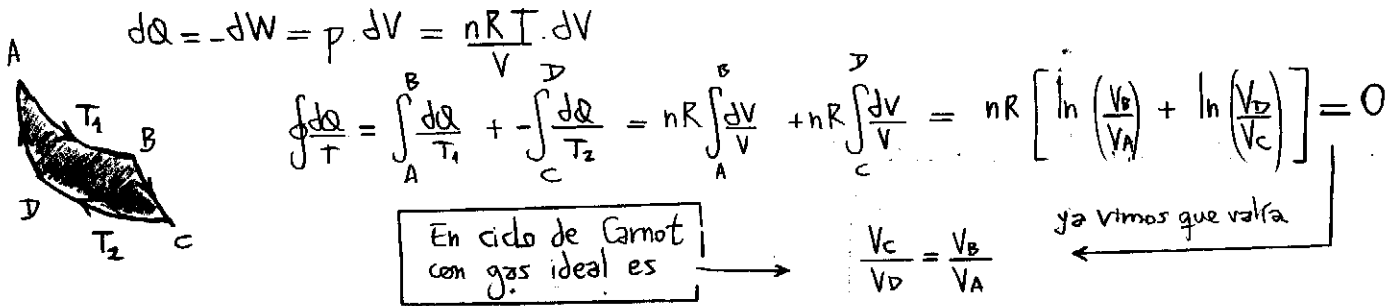 dQ = -dW = p.dV = nRT/V . dV
A
B
D
C
T₁
T₂
∮ dQ/T = ∫_A^B dQ/T₁ + -∫_C^D dQ/T₂ = nR ∫_A^B dV/V + nR ∫_C^D dV/V = nR [ ln (V_B/V_A) + ln (V_D/V_C) ] = 0
En ciclo de Carnot
con gas ideal es
V_C/V_D = V_B/V_A
ya vimos que valía